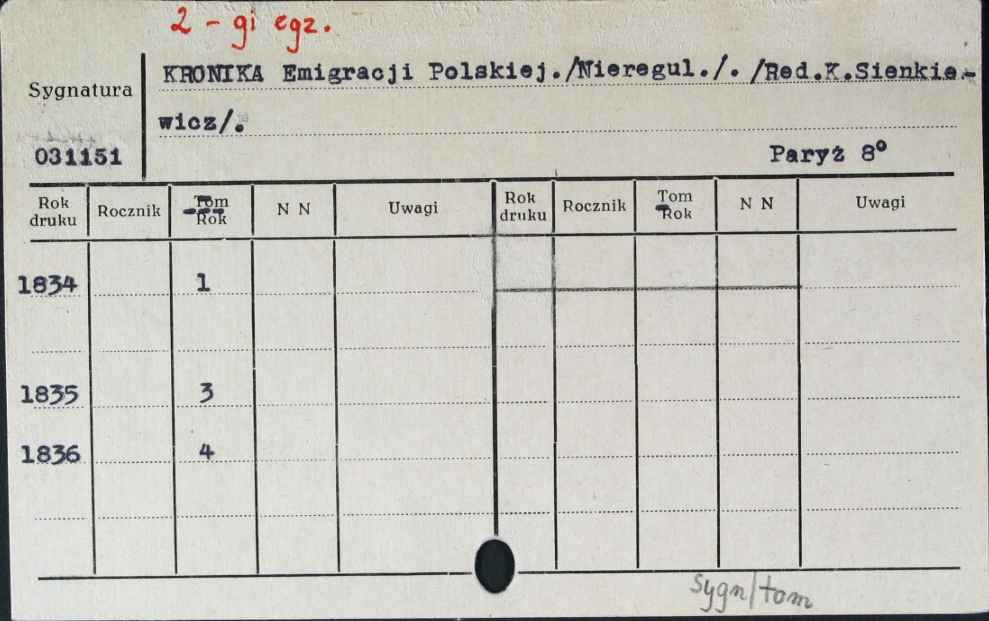 2 - gi egz.
Sygnatura
KRONIKA Emigracji Polskiej./Nieregul./. /Red.K.Sienkie-
wicz/.
031151
Paryż 8°
Rok druku Rocznik Tom Rok N N Uwagi Rok druku Rocznik Tom Rok N N Uwagi
1834 1
1835 3
1836 4
Sygn/tom